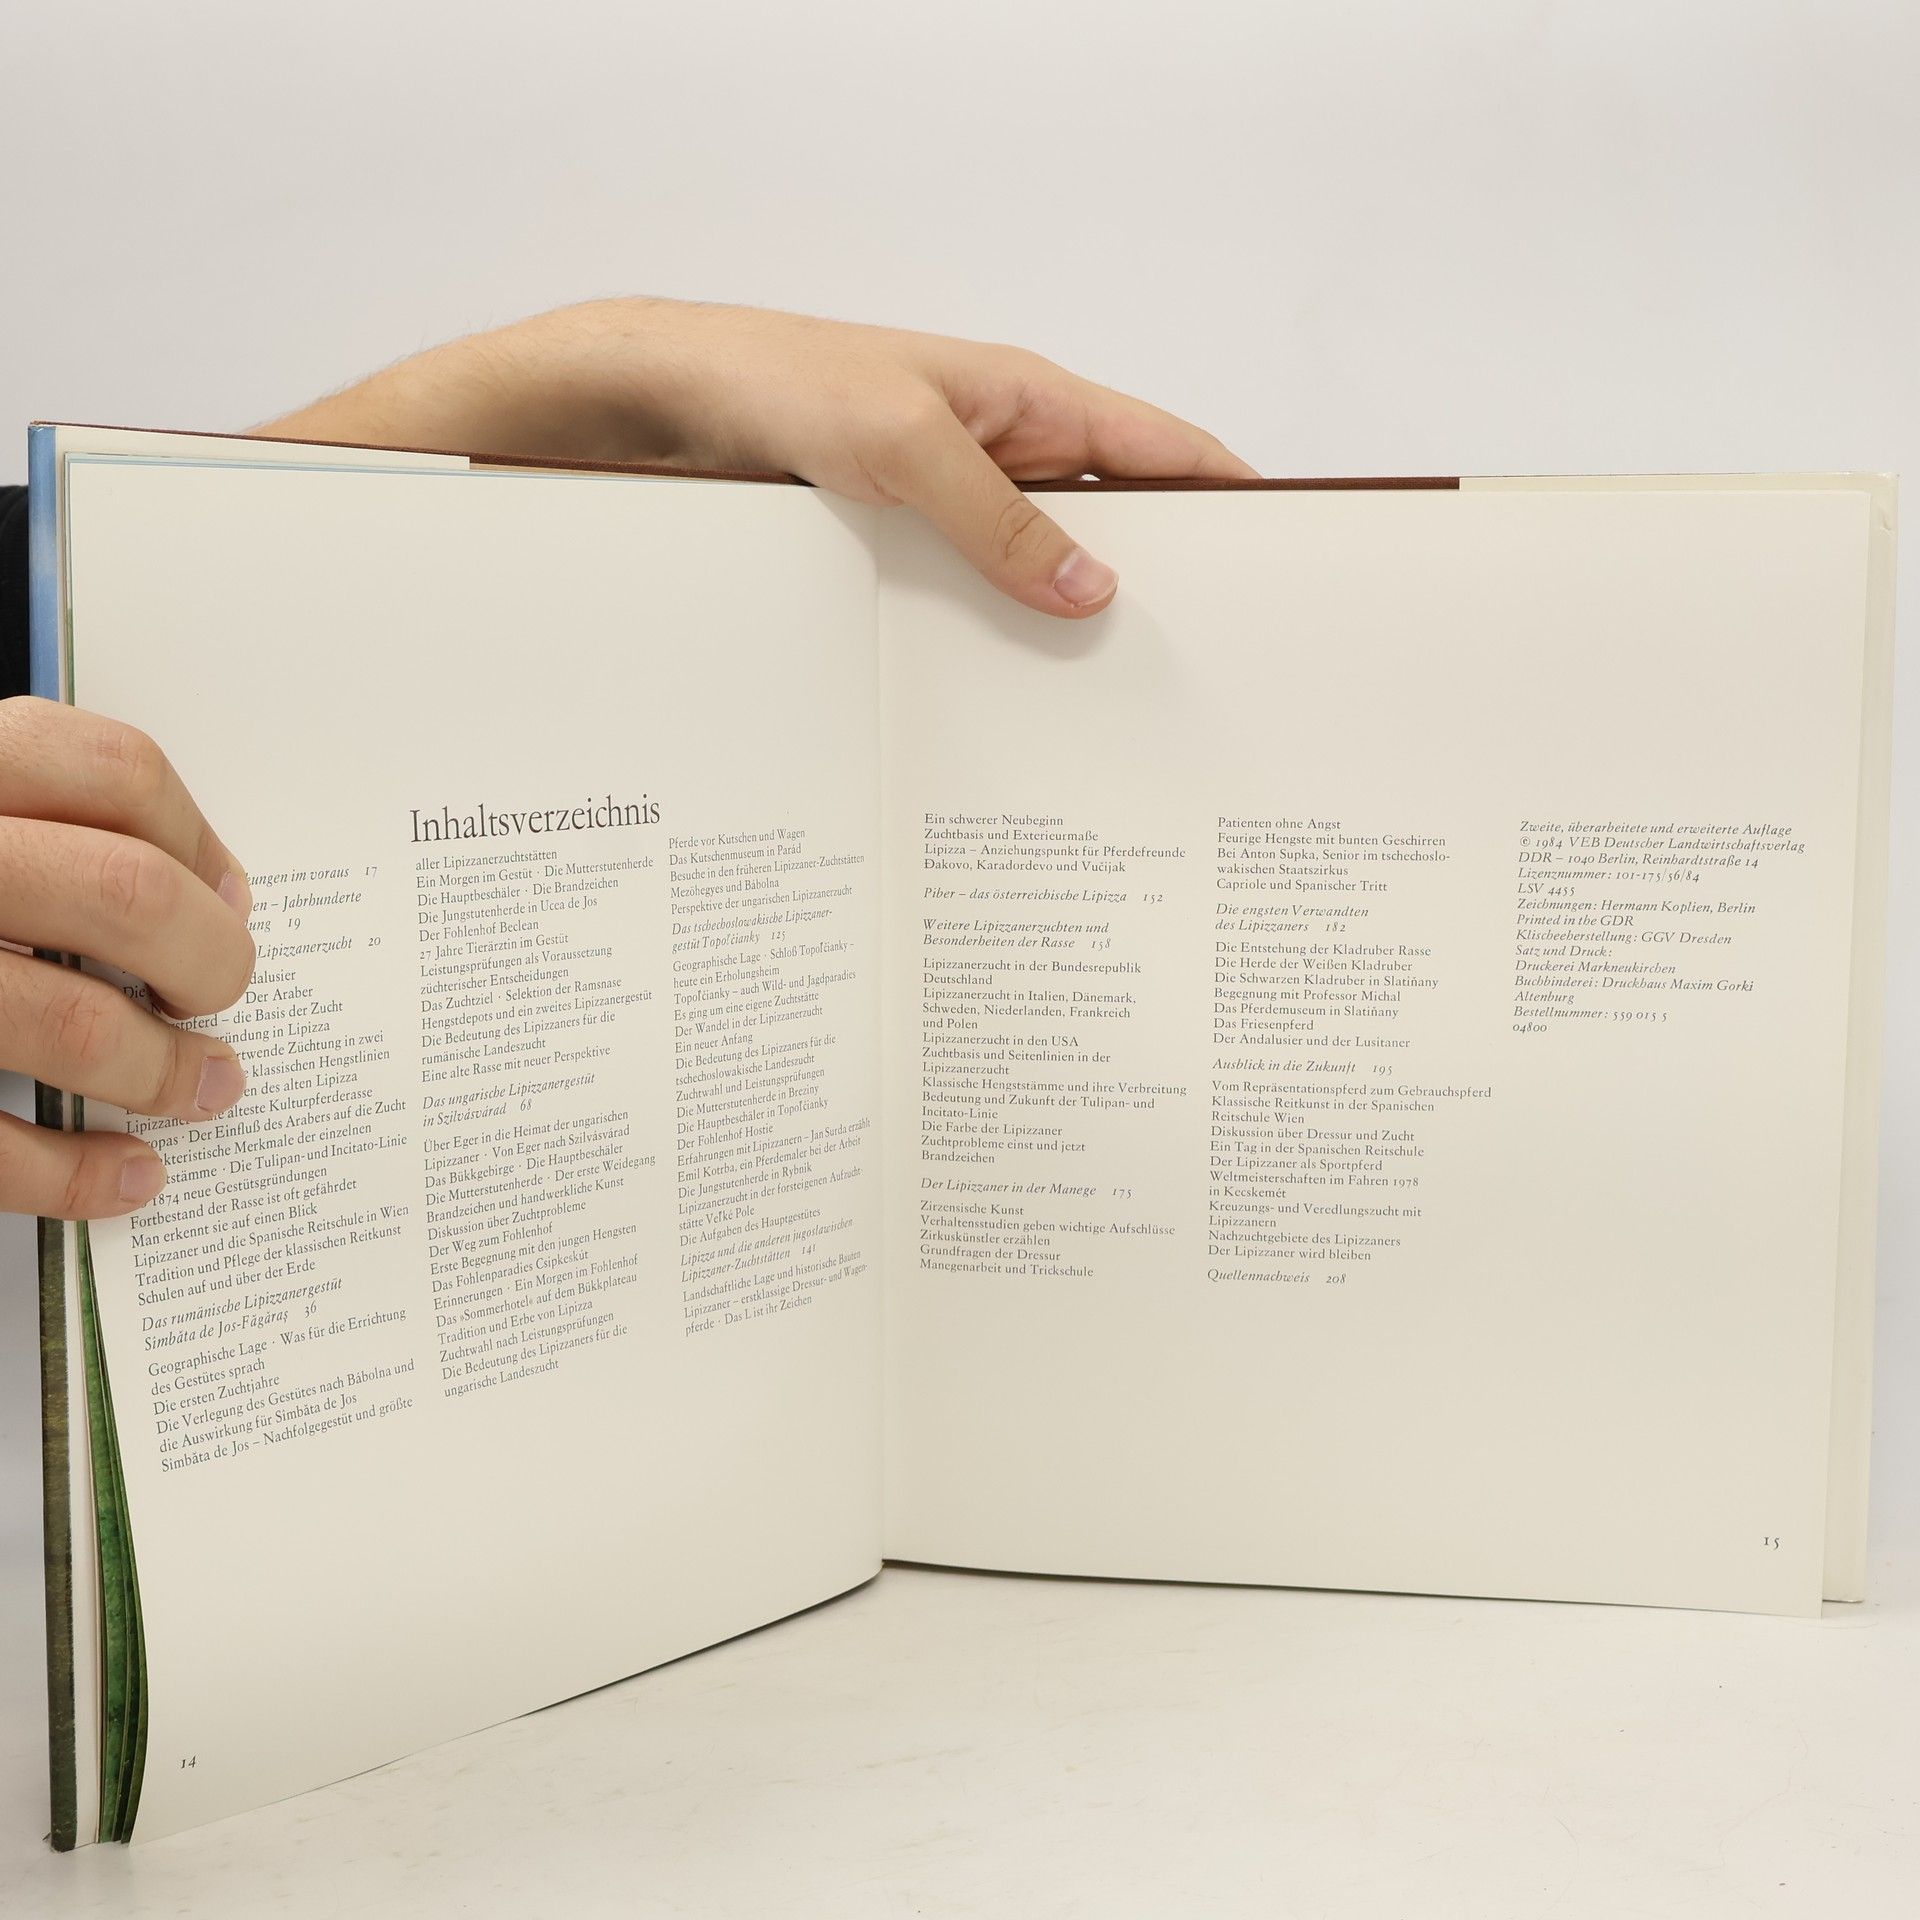 Inhaltsverzeichnis
kungen im voraus 17
en – Jahrhunderte
lung 19
Lipizzanerzucht 20
dalusier
Die Der Araber
rstpferd – die Basis der Zucht
ründung in Lipizza
rtwende Züchtung in zwei
e klassischen Hengstlinien
en des alten Lipizza
älteste Kulturpferderasse
ropas · Der Einfluß des Arabers auf die Zucht
akteristische Merkmale der einzelnen
tstämme · Die Tulipan- und Incitato-Linie
1874 neue Gestütsgründungen
Fortbestand der Rasse ist oft gefährdet
Man erkennt sie auf einen Blick
Lipizzaner und die Spanische Reitschule in Wien
Tradition und Pflege der klassischen Reitkunst
Schulen auf und über der Erde
Das rumänische Lipizzanergestüt
Sîmbăta de Jos-Făgăraş 36
Geographische Lage · Was für die Errichtung
des Gestütes sprach
Die ersten Zuchtjahre
Die Verlegung des Gestütes nach Bábolna und
die Auswirkung für Sîmbăta de Jos
Sîmbăta de Jos – Nachfolgegestüt und größte
aller Lipizzanerzuchtstätten
Ein Morgen im Gestüt · Die Mutterstutenherde
Die Hauptbeschäler · Die Brandzeichen
Die Jungstutenherde in Ucea de Jos
Der Fohlenhof Beclean
27 Jahre Tierärztin im Gestüt
Leistungsprüfungen als Voraussetzung
züchterischer Entscheidungen
Das Zuchtziel · Selektion der Ramsnase
Hengstdepots und ein zweites Lipizzanergestüt
Die Bedeutung des Lipizzaners für die
rumänische Landeszucht
Eine alte Rasse mit neuer Perspektive
Das ungarische Lipizzanergestüt
in Szilvásvárad 68
Über Eger in die Heimat der ungarischen
Lipizzaner · Von Eger nach Szilvásvárad
Das Bükkgebirge · Die Hauptbeschäler
Die Mutterstutenherde · Der erste Weidegang
Brandzeichen und handwerkliche Kunst
Diskussion über Zuchtprobleme
Der Weg zum Fohlenhof
Erste Begegnung mit den jungen Hengsten
Das Fohlenparadies Csipkeskút
Erinnerungen · Ein Morgen im Fohlenhof
Das »Sommerhotel« auf dem Bükkplateau
Tradition und Erbe von Lipizza
Zuchtwahl nach Leistungsprüfungen
Die Bedeutung des Lipizzaners für die
ungarische Landeszucht
Pferde vor Kutschen und Wagen
Das Kutschenmuseum in Parád
Besuche in den früheren Lipizzaner-Zuchtstätten
Mezöhegyes und Bábolna
Perspektive der ungarischen Lipizzanerzucht
Das tschechoslowakische Lipizzaner-
gestüt Topoľčianky 125
Geographische Lage · Schloß Topoľčianky –
heute ein Erholungsheim
Topoľčianky – auch Wild- und Jagdparadies
Es ging um eine eigene Zuchtstätte
Der Wandel in der Lipizzanerzucht
Ein neuer Anfang
Die Bedeutung des Lipizzaners für die
tschechoslowakische Landeszucht
Zuchtwahl und Leistungsprüfungen
Die Mutterstutenherde in Breziny
Die Hauptbeschäler in Topoľčianky
Der Fohlenhof Hostie
Erfahrungen mit Lipizzanern – Jan Surda erzählt
Emil Kotrba, ein Pferdemaler bei der Arbeit
Die Jungstutenherde in Rybnik
Lipizzanerzucht in der forsteigenen Aufzucht-
stätte Veľké Pole
Die Aufgaben des Hauptgestütes
Lipizza und die anderen jugoslawischen
Lipizzaner-Zuchtstätten 141
Landschaftliche Lage und historische Bauten
Lipizzaner – erstklassige Dressur- und Wagen-
pferde · Das L ist ihr Zeichen
14
Ein schwerer Neubeginn
Zuchtbasis und Exterieurmaße
Lipizza – Anziehungspunkt für Pferdefreunde
Đakovo, Karadordevo und Vučijak
Piber – das österreichische Lipizza 152
Weitere Lipizzanerzuchten und
Besonderheiten der Rasse 158
Lipizzanerzucht in der Bundesrepublik
Deutschland
Lipizzanerzucht in Italien, Dänemark,
Schweden, Niederlanden, Frankreich
und Polen
Lipizzanerzucht in den USA
Zuchtbasis und Seitenlinien in der
Lipizzanerzucht
Klassische Hengststämme und ihre Verbreitung
Bedeutung und Zukunft der Tulipan- und
Incitato-Linie
Die Farbe der Lipizzaner
Zuchtprobleme einst und jetzt
Brandzeichen
Der Lipizzaner in der Manege 175
Zirzensische Kunst
Verhaltensstudien geben wichtige Aufschlüsse
Zirkuskünstler erzählen
Grundfragen der Dressur
Manegenarbeit und Trickschule
Patienten ohne Angst
Feurige Hengste mit bunten Geschirren
Bei Anton Supka, Senior im tschechoslo-
wakischen Staatszirkus
Capriole und Spanischer Tritt
Die engsten Verwandten
des Lipizzaners 182
Die Entstehung der Kladruber Rasse
Die Herde der Weißen Kladruber
Die Schwarzen Kladruber in Slatiňany
Begegnung mit Professor Michal
Das Pferdemuseum in Slatiňany
Das Friesenpferd
Der Andalusier und der Lusitaner
Ausblick in die Zukunft 195
Vom Repräsentationspferd zum Gebrauchspferd
Klassische Reitkunst in der Spanischen
Reitschule Wien
Diskussion über Dressur und Zucht
Ein Tag in der Spanischen Reitschule
Der Lipizzaner als Sportpferd
Weltmeisterschaften im Fahren 1978
in Kecskemét
Kreuzungs- und Veredlungszucht mit
Lipizzanern
Nachzuchtgebiete des Lipizzaners
Der Lipizzaner wird bleiben
Quellennachweis 208
Zweite, überarbeitete und erweiterte Auflage
© 1984 VEB Deutscher Landwirtschaftsverlag
DDR – 1040 Berlin, Reinhardtstraße 14
Lizenznummer: 101-175/56/84
LSV 4455
Zeichnungen: Hermann Koplien, Berlin
Printed in the GDR
Klischeeherstellung: GGV Dresden
Satz und Druck:
Druckerei Markneukirchen
Buchbinderei: Druckhaus Maxim Gorki
Altenburg
Bestellnummer: 559 015 5
04800
15